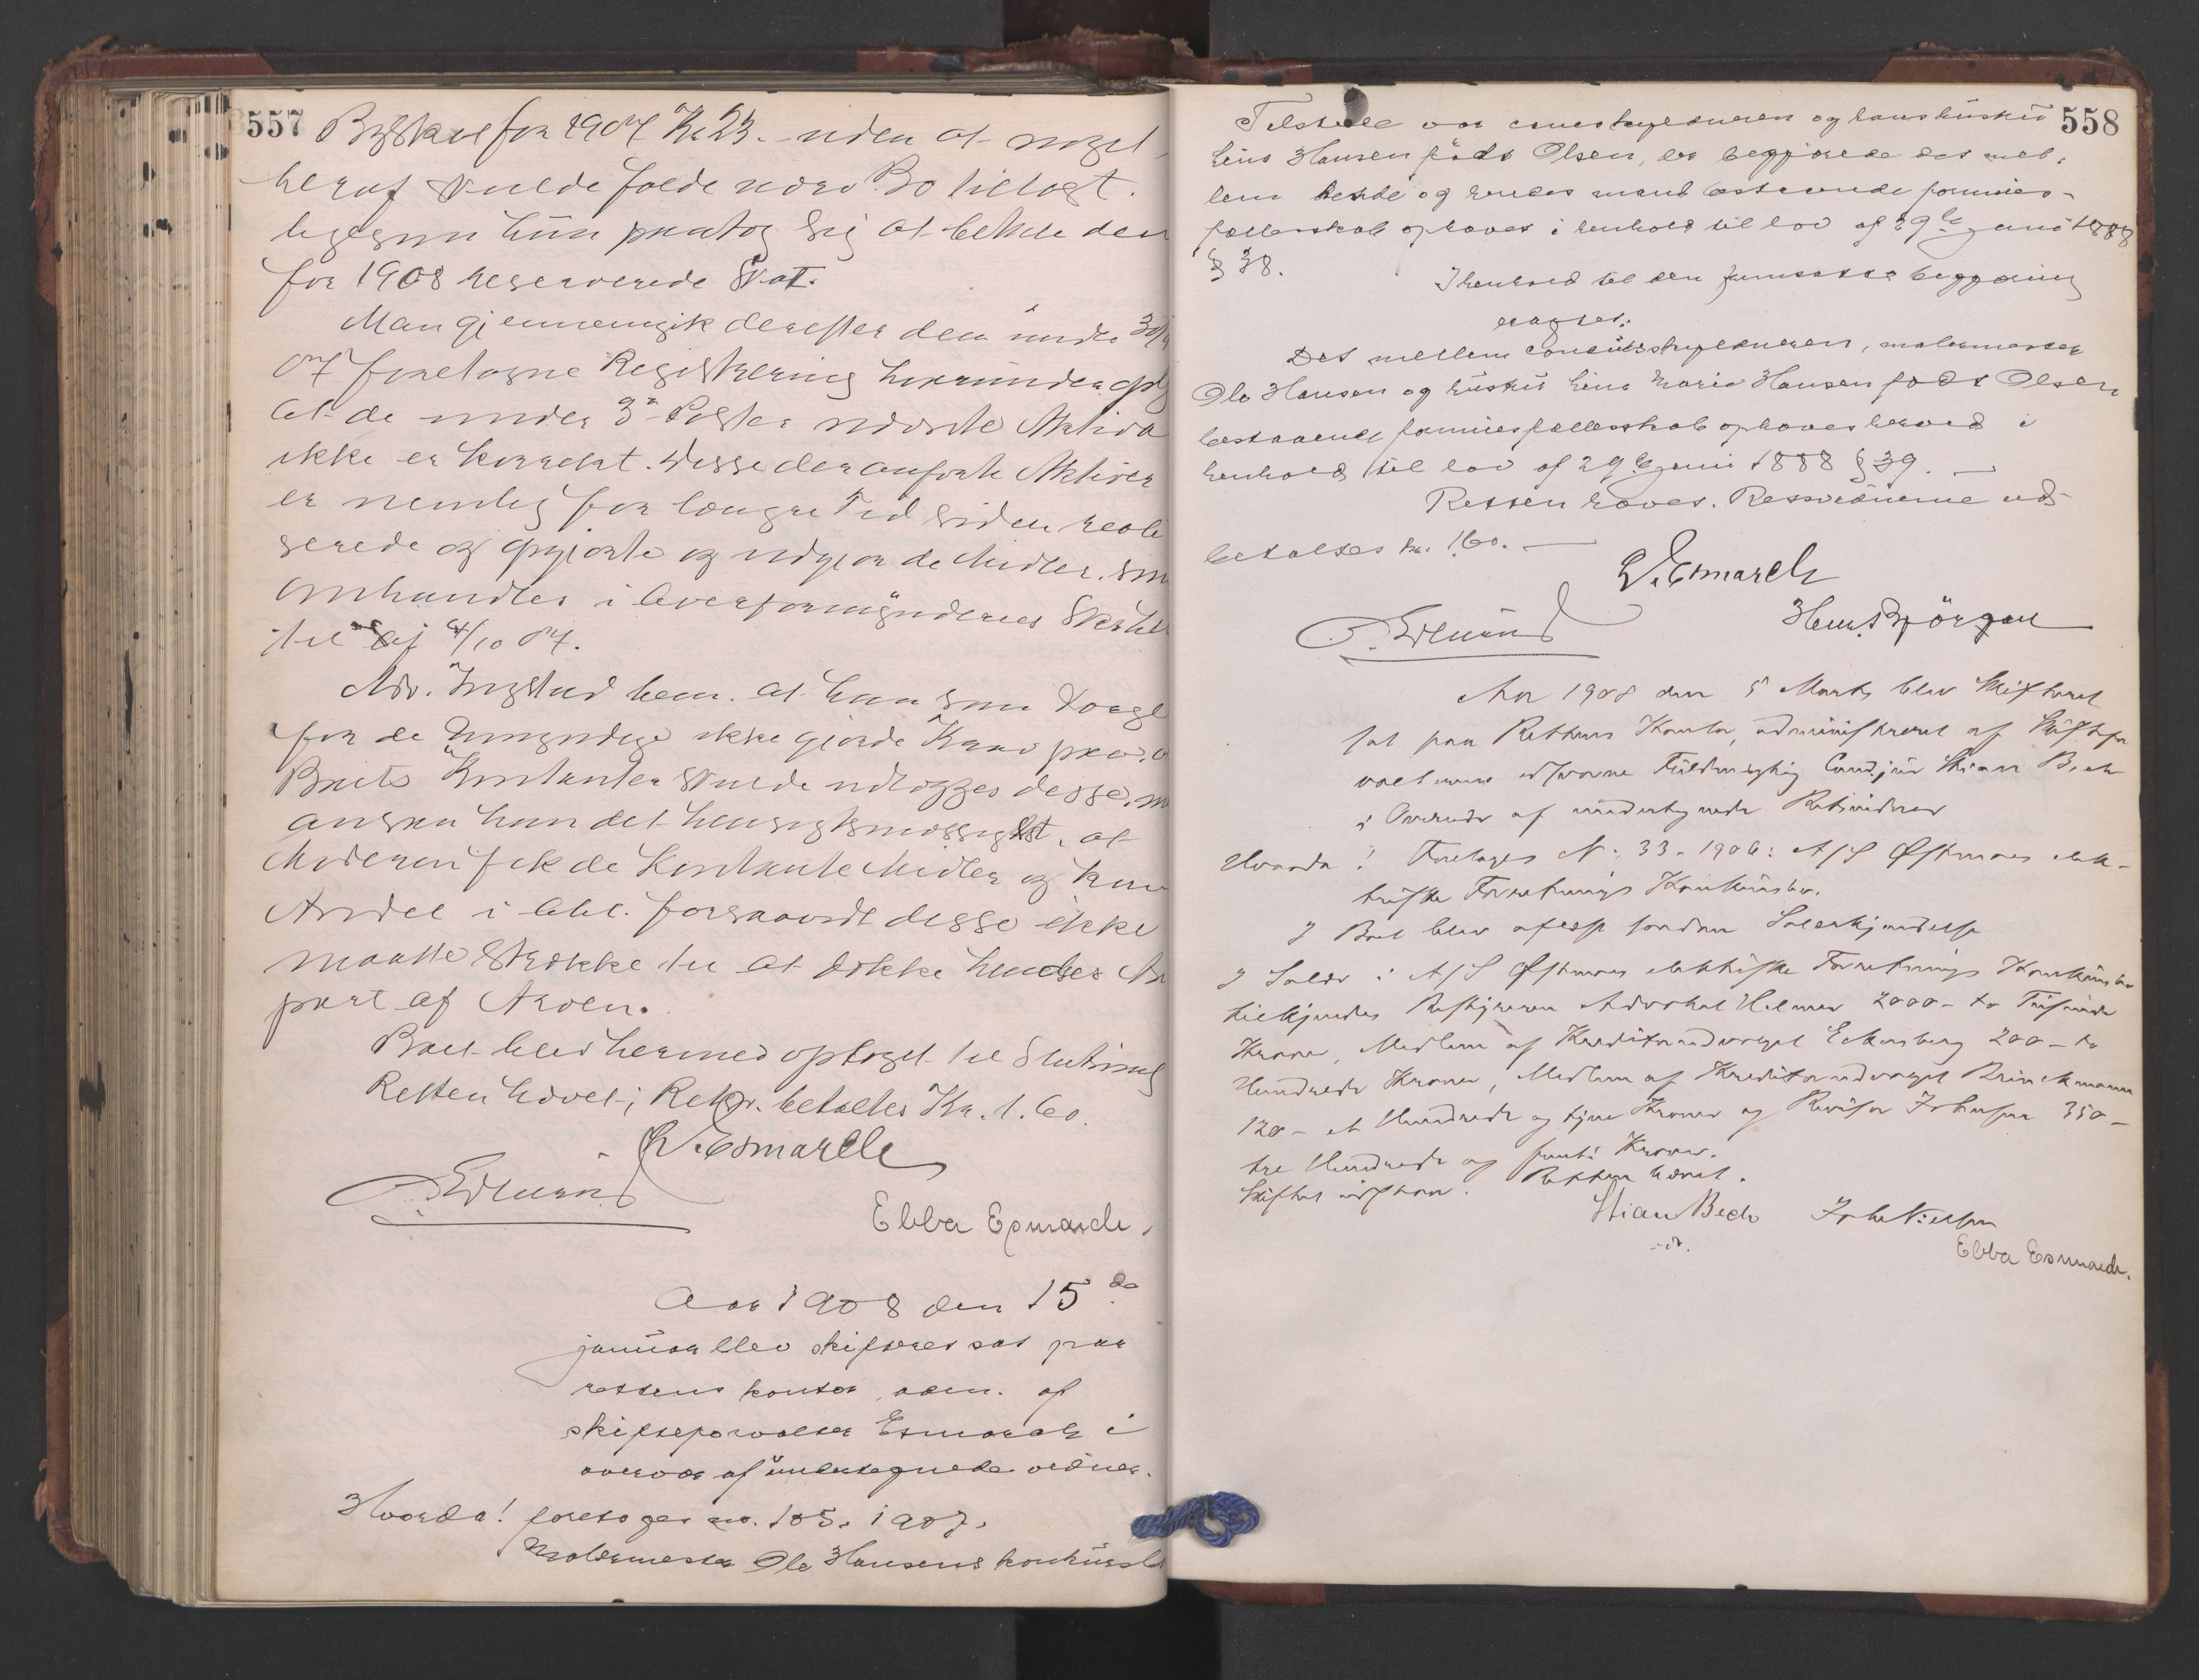 557
Byskat for 1907 Kr 23. – uden at noget
heraf skulde falde nærv. Bo tillast.
ligesom hun paatog sig at betale den
for 1908 reserverede Skat.
Man gjennemgik derefter den under 30/
07 foretagne Registrering hvorunder opl
at de under 3die Poster nævnte Aktiva
ikke er korrekt. Disse der anførte Aktiver
er nemlig for længre Tid siden reali
serede og opgjorte og udgjør de Midler, som
omhandles i Overformynderiets Skrivel
til af 4/10 07.
Adv. Ingstad bem. at han som Værge
for de Umyndige ikke gjorde Krav paa, a
Boets Kontanter skulde udlægges disse, m
ansaa han det hensigtsmæssigst, at
Moderen fik de kontante Midler og kun
Andel i forsaavidt disse ikke
maatte strække til at dække hendes An
part af Arven.
Boet blev hermed optaget til Slutning
Retten hævet; Retsv. betaltes Kr. 1.60.
Esmarch
Ebba Esmarch.
Aar 1908 den 15de
januar blev skifteret sat paa
rettens kontor, adm. af
skifteforvalter Esmarch i
overvær af undertegnede vidner.
Hvorda! foretoges no. 105. 1907.
Malermester Ole Hansens konkursbo
558
Tilstede var concursskyldneren og hans hustru
Lina Hansen født Olsen, der begjærede det mel-
lem hende og hendes mand bestaaende formues-
fællesskab ophævet i henhold til lov af 29de juni 1888
§ 38.
I henhold til den fremsatte begjæring
eragtet:
Det mellem concursskyldneren, malermester
Ole Hansen og hustru Lina Marie Hansen født Olsen
bestaaende formuesfællesskab ophæves herved i
henhold til lov af 29de juni 1888 § 39. —
Retten hævet. Retsvidnerne ud-
betaltes kr. 1.60. —
Esmarch
Aar 1908 den 5 Marts blev Skifteret
sat paa Rettens Kontor, administreret af Skiftefor
valterens edsvorne Fuldmægtig Cand. jur Stian Bech
i Overvær af undertegnede Retsvidner
Hvorda! Foretoges No. 33. 1906: A/S Østmoes elek-
triske Forretnings Konkursbo.
I Boet blev afsagt saadan Salærkjendelse
I Salær i A/S Østmoes elektriske Forretnings Konkursbo
tilkjendes Bestyreren Advokat Hilmer 2000 – to Tusinde
Kroner, Medlem af Kreditorudvalget Eckersberg 200 – to
Hundrede Kroner, Medlem af Kreditorudvalget Brinckmann
120 – et Hundrede og tyve Kroner og Revisor Johnsen 350 –
tre Hundrede og femti Kroner.
Retten hævet.
Stian Bech
Ebba Esmarch.